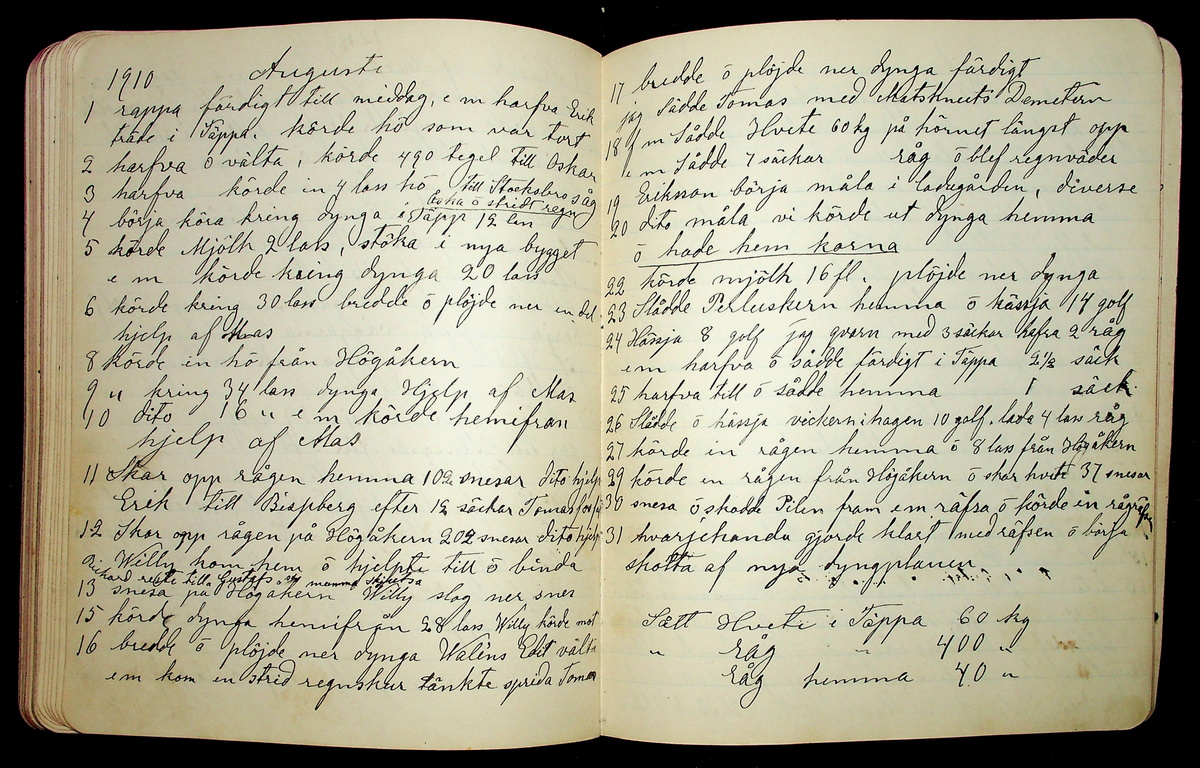 1910 Augusti
1 rappa färdigt till middag, e m harfva Erik
träde i Täppa. körde hö som var tort
2 harfva ö välta, körde 490 tegel till Oskar
3 harfva körde in 4 lass hö till Stocksbro såg
åska ö stridt regn
4 börja köra kring dynga i Täpp 12 lass
5 körde Mjölk 2 lass, stöka i nya bygget
e m körde kring dynga 20 lass
6 körde kring 30 lass bredde ö plöjde ner en del
hjelp af Mas
8 körde in hö från Högåkern
9 " kring 34 lass dynga Hjelp af Mas
10 dito 16 " e m körde hemifran
hjelp af Mas
11 Skar opp rågen hemma 102 snesar dito hjelp
Erik till Bispberg efter 1½ säckar Tomasfosfa
12 Skar opp rågen på Högåkern 202 snesar dito hjelp
Willy kom hem ö hjelpte till ö binda
Rickard reste till Gustafs mamma
13 snesa på Högåkern Willy slog ner snes
15 körde dynga hemifrån 28 lass Willy körde mot
16 bredde ö plöjde ner dynga Walins Edit välta
em kom en strid regnskur tänkte sprida Tomas
17 bredde ö plöjde ner dynga färdigt
jag sådde Tomas med Matsknuts Demetern
18 f m Sådde Hvete 60 kg på hörnet längst opp
e m Sådde 7 säckar råg ö blef regnväder
19 Eriksson börja måla i ladugården, diverse
20 dito måla vi körde ut dynga hemma
ö hade hem korna
22 körde mjölk 16 fl. plöjde ner dynga
23 Slådde Perluskern hemma ö hässja 14 golf
24 Hässja 8 golf jag qvarn med 3 säckar hafra 2 råg
em harfva ö sådde färdigt i Täppa 2½ säck
25 harfva till ö sådde hemma 1 säck
26 Slådde ö hässja vickern i hagen 10 golf. lada 4 lass råg
27 körde in rågen hemma ö 8 lass från Högåkern
29 körde en rågen från Högåkern ö skar hvete 37 snesar
30 snesa ö skodde Pilen fram em räfsa ö körde in rågräfs
31 hvarjehanda gjorde klart med räfsen ö börja
skotta af nya dyngplanen
Sått Hvete i Täppa 60 kg
" Råg " 400 "
Råg hemma 40 "